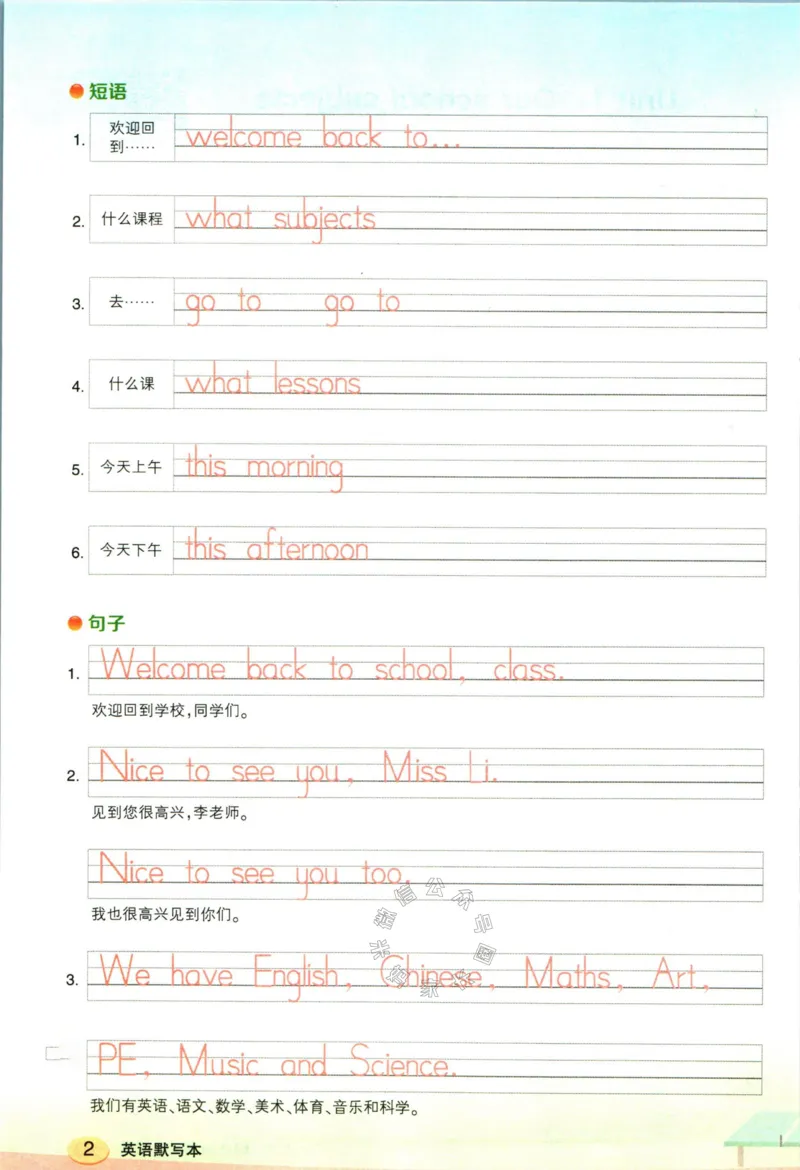 短语
1. 欢迎回到…… welcome back to...
2. 什么课程 what subjects
3. 去…… go to go to
4. 什么课 what lessons
5. 今天上午 this morning
6. 今天下午 this afternoon
句子
1. Welcome back to school, class.
欢迎回到学校,同学们。
2. Nice to see you, Miss Li.
见到您很高兴,李老师。
Nice to see you too.
我也很高兴见到你们。
3. We have English, Chinese, Maths, Art,
PE, Music and Science.
我们有英语、语文、数学、美术、体育、音乐和科学。
2 英语默写本